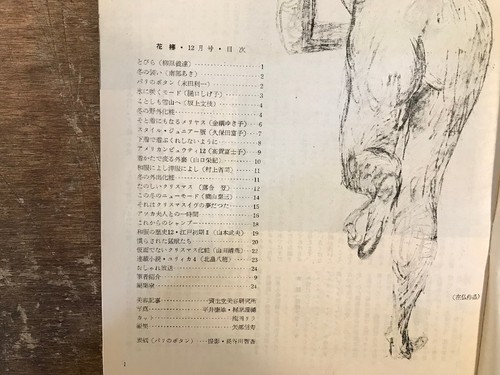 花椿・12月号・目次
とびら(柳原義達)……1
冬の装い(南部あき)……1
パリのボタン(永田利一)……2
氷に咲くモード(樋口しげ子)……3
ことしも雪山へ(坂上文枝)……4
冬の野外化粧……4
そと着にもなるメリヤス(金綱ゆき子)……6
スタイル・ジュニアー版(久保田富子)……7
下着で着ぶくれしないように……8
アメリカンビュウティ12(志賀富士子)……9
着かたで戻る外套(山口栄紀)……10
和服によし洋服によし(村上省三)……11
冬の外出化粧……11
たのしいクリスマス(落合登)……12
この冬のニューモード(桑山景三)……14
それはクリスマスイヴの夢だった……15
アッカ夫人との一時間……18
これからのシャンプー……19
和服の歴史12・江戸初期1(山本武夫)……19
慣らされた猛獣たち……20
仮面でないクリスマス化粧(山田清亮)……22
連載小説・ユリィカ4(北畠八穂)……23
おしゃれ放送……24
筆者紹介……9
編集室……24
美容記事……資生堂美容研究所
写真……平井康雄・村原護國
カット……
編集……矢部信寿
表紙(パリのボタン)……撮影・長谷川智香
1